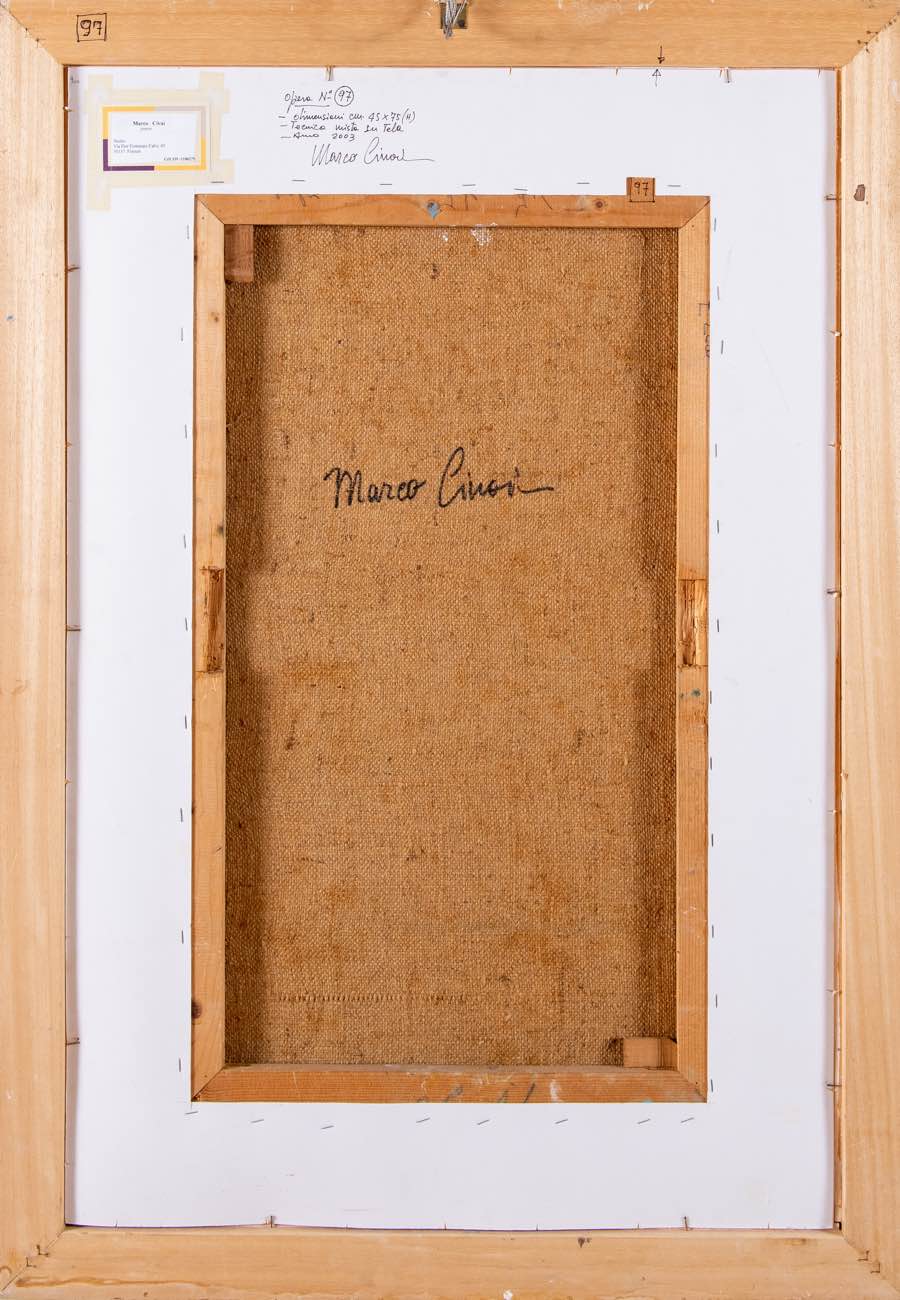 97
Marco Civai
pittore
Studio:
50137 Firenze
Opera N° 97
- Dimensioni cm. 45x75(H)
- Tecnica mista su Tela
- Anno 2003
Marco Civai
97
Marco Civai